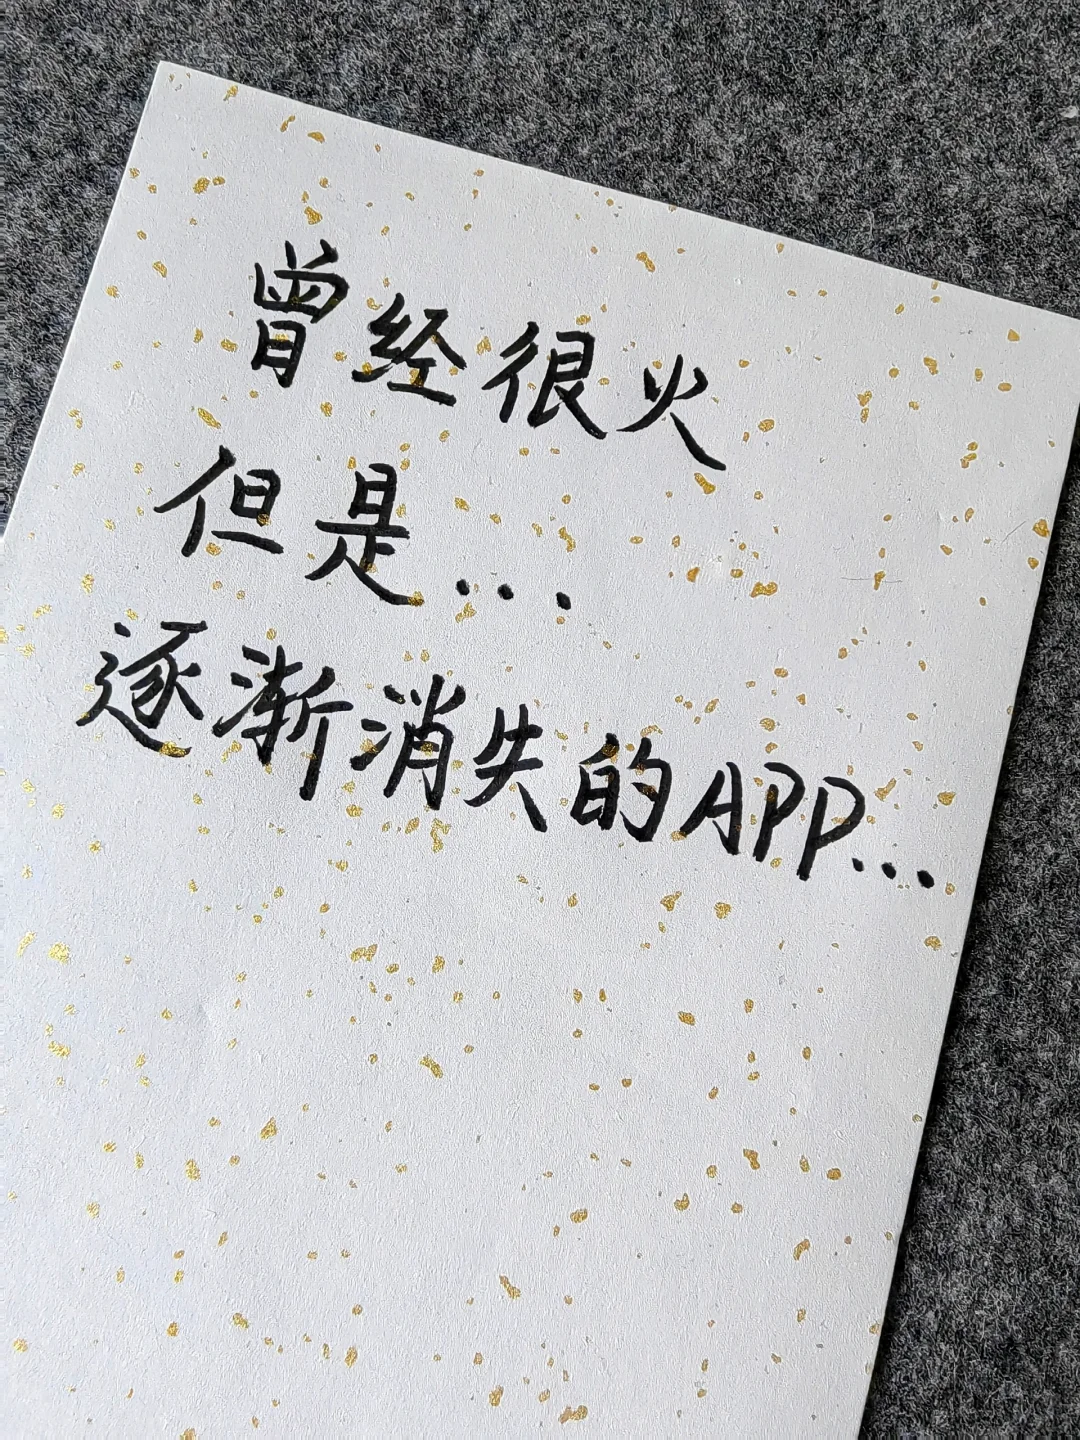 曾经很火
但是...
逐渐消失的APP...